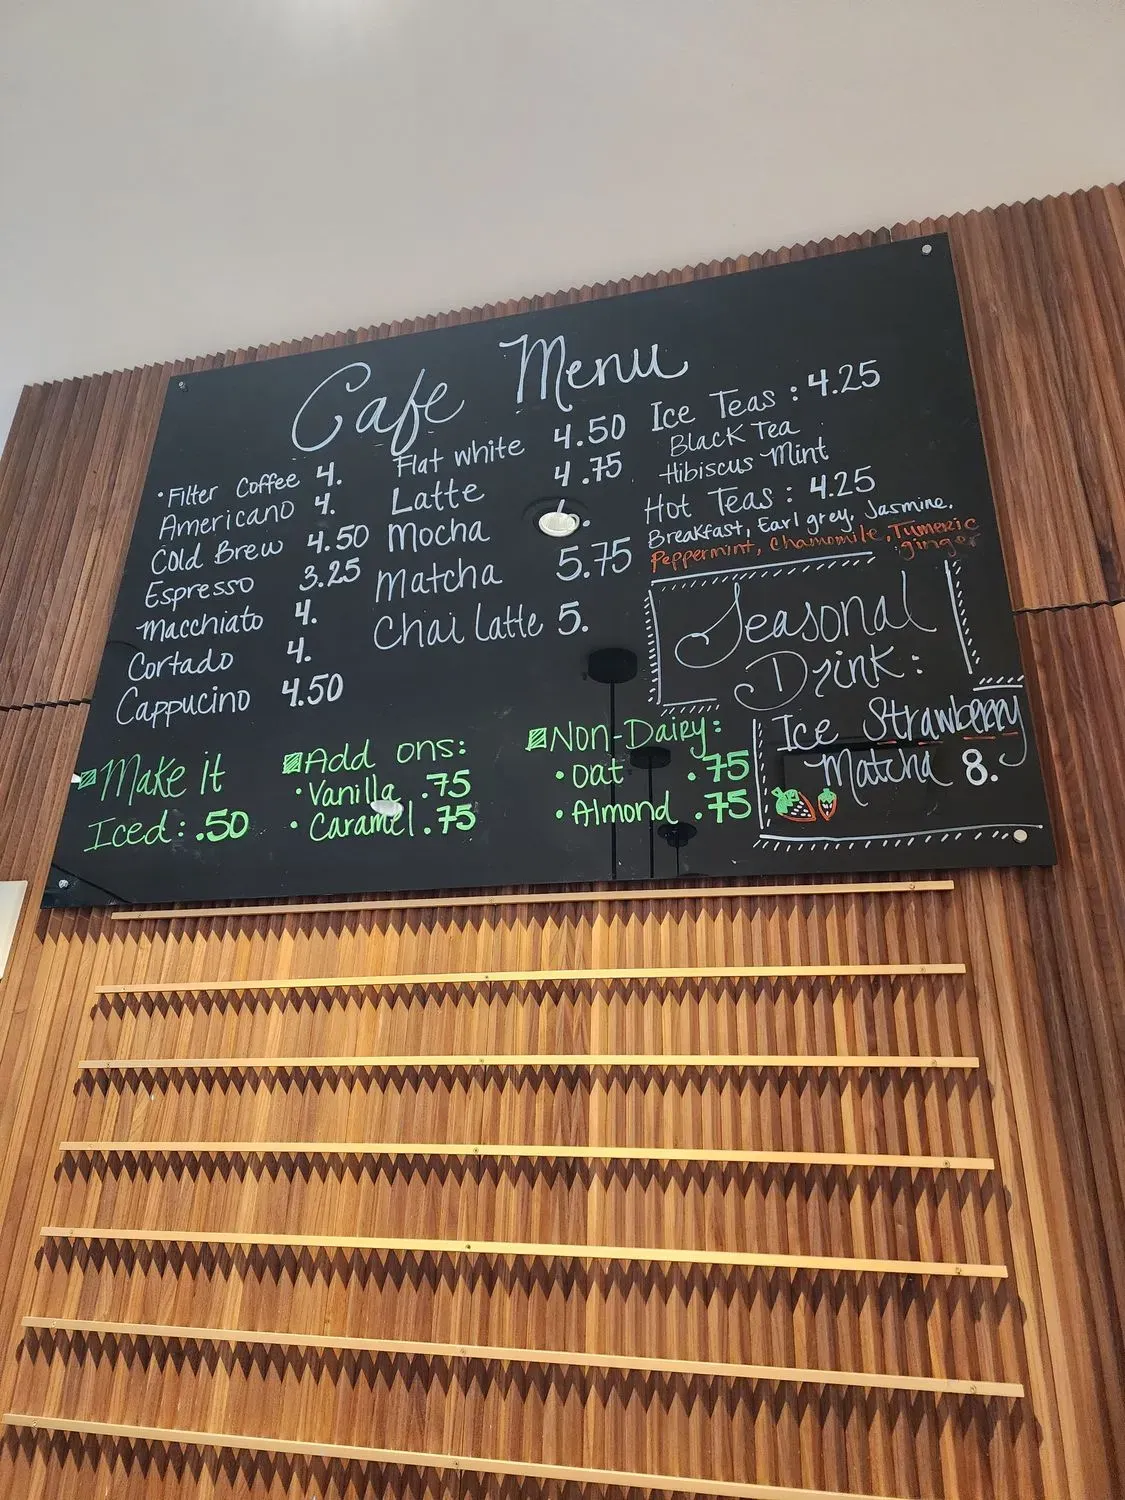 Cafe Menu
• Filter Coffee 4.
Americano 4.
Cold Brew 4.50
Espresso 3.25
Macchiato 4.
Cortado 4.
Cappucino 4.50
Flat white 4.50
Latte 4.75
Mocha
Matcha 5.75
Chai latte 5.
Ice Teas : 4.25
Black Tea
Hibiscus Mint
Hot Teas : 4.25
Breakfast, Earl grey, Jasmine,
Peppermint, Chamomile, Tumeric
ginger
Seasonal
Drink:
Ice Strawberry
Matcha 8.
Make it
Iced: .50
Add ons:
• Vanilla .75
• Caramel .75
Non-Dairy:
• Oat .75
• Almond .75